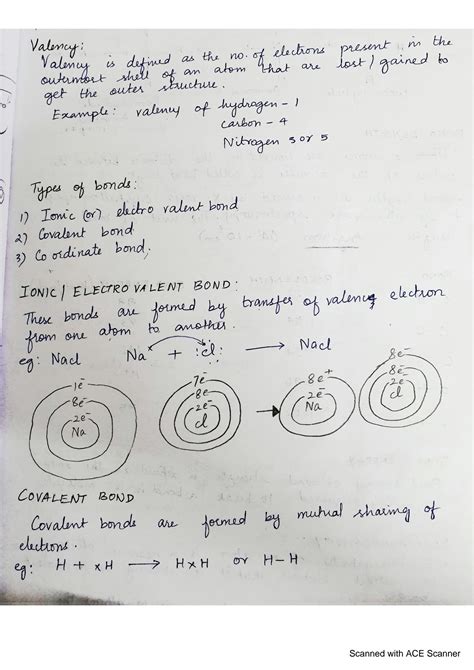 Valency:
Valency is defined as the no. of electrons present in the
outermost shell of an atom that are lost / gained to
get the outer structure.
Example: valency of hydrogen - 1
Carbon - 4
Nitrogen 3 or 5
Types of bonds:
1) Ionic (or) electro valent bond
2) Covalent bond
3) Co ordinate bond.
IONIC / ELECTRO VALENT BOND:
These bonds are formed by transfer of valency electron
from one atom to another.
eg: Nacl Na× + :cl: → Nacl
1e⁻ 8e⁻ 2e⁻ Na
7e⁻ 8e⁻ 2e⁻ cl
8e⁺ 2e⁻ Na
8e⁻ 8e⁻ 2e⁻ cl
COVALENT BOND
Covalent bonds are formed by mutual sharing of
electrons.
eg: H + ×H → H×H or H-H
Scanned with ACE Scanner